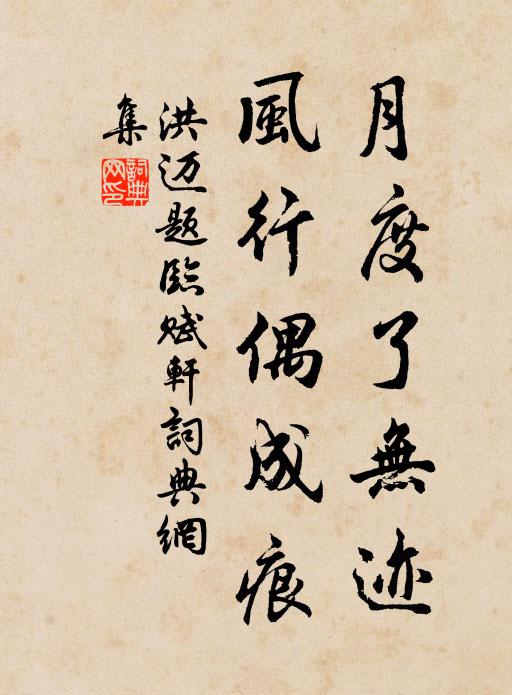 月度了無迹
風行偶成痕
洪迈题臨赋軒詞典網
集
詞典
网印